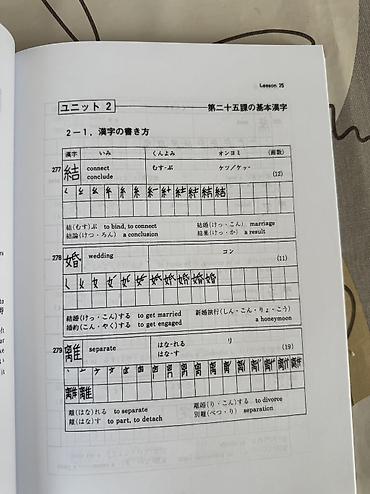 Lesson 25
ユニット 2 第二十五課の基本漢字
2-1. 漢字の書き方
漢字 いみ くんよみ オンヨミ (画数)
277 結 connect むす-ぶ ケツ/ケッ- (12)
conclude
結(むす)ぶ to bind, to connect 結婚(けっ・こん) marriage
結論(けつ・ろん) a conclusion 結果(けっ・か) a result
278 婚 wedding コン (11)
結婚(けっ・こん)する to get married 新婚旅行(しん・こん・りょ・こう)
婚約(こん・やく)する to get engaged a honeymoon
279 離 separate はな-れる リ (19)
はな-す
離(はな)れる to separate 離婚(り・こん)する to divorce
離(はな)す to part, to detach 別離(べつ・り) separation